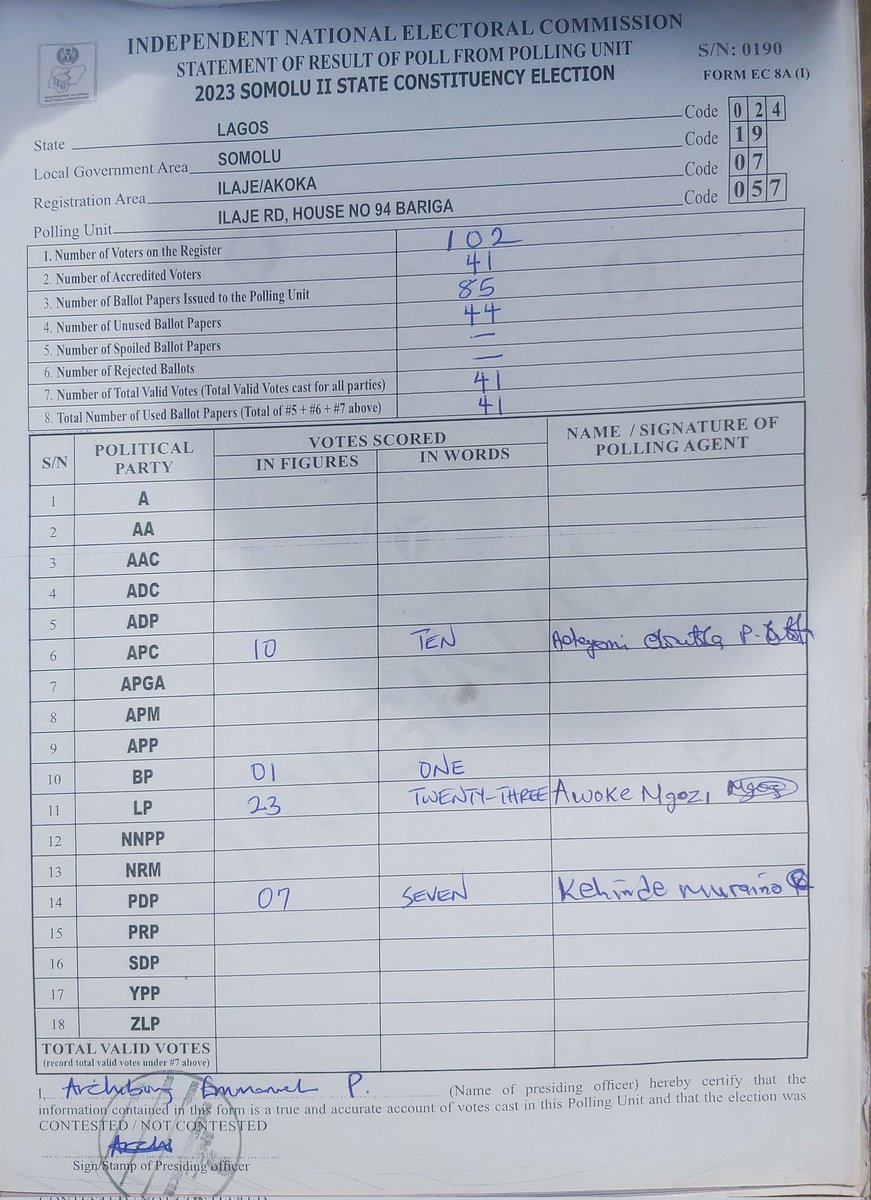 INDEPENDENT NATIONAL ELECTORAL COMMISSION
STATEMENT OF RESULT OF POLL FROM POLLING UNIT
2023 SOMOLU II STATE CONSTITUENCY ELECTION
S/N: 0190
FORM EC 8A (I)
State LAGOS Code 024
Local Government Area SOMOLU Code 19
Registration Area ILAJE/AKOKA Code 07
Polling Unit ILAJE RD, HOUSE NO 94 BARIGA Code 057
1. Number of Voters on the Register 102
2. Number of Accredited Voters 41
3. Number of Ballot Papers Issued to the Polling Unit 85
4. Number of Unused Ballot Papers 44
5. Number of Spoiled Ballot Papers —
6. Number of Rejected Ballots —
7. Number of Total Valid Votes (Total Valid Votes cast for all parties) 41
8. Total Number of Used Ballot Papers (Total of #5 + #6 + #7 above) 41
S/N POLITICAL PARTY VOTES SCORED NAME / SIGNATURE OF POLLING AGENT
IN FIGURES IN WORDS
1 A
2 AA
3 AAC
4 ADC
5 ADP
6 APC 10 TEN P.
7 APGA
8 APM
9 APP
10 BP 01 ONE
11 LP 23 TWENTY-THREE Awoke Ngozi
12 NNPP
13 NRM
14 PDP 07 SEVEN Kehinde Muraino
15 PRP
16 SDP
17 YPP
18 ZLP
TOTAL VALID VOTES
(record total valid votes under #7 above)
I, Emmanuel P. (Name of presiding officer) hereby certify that the
information contained in this form is a true and accurate account of votes cast in this Polling Unit and that the election was
CONTESTED / NOT CONTESTED
Sign/Stamp of Presiding officer